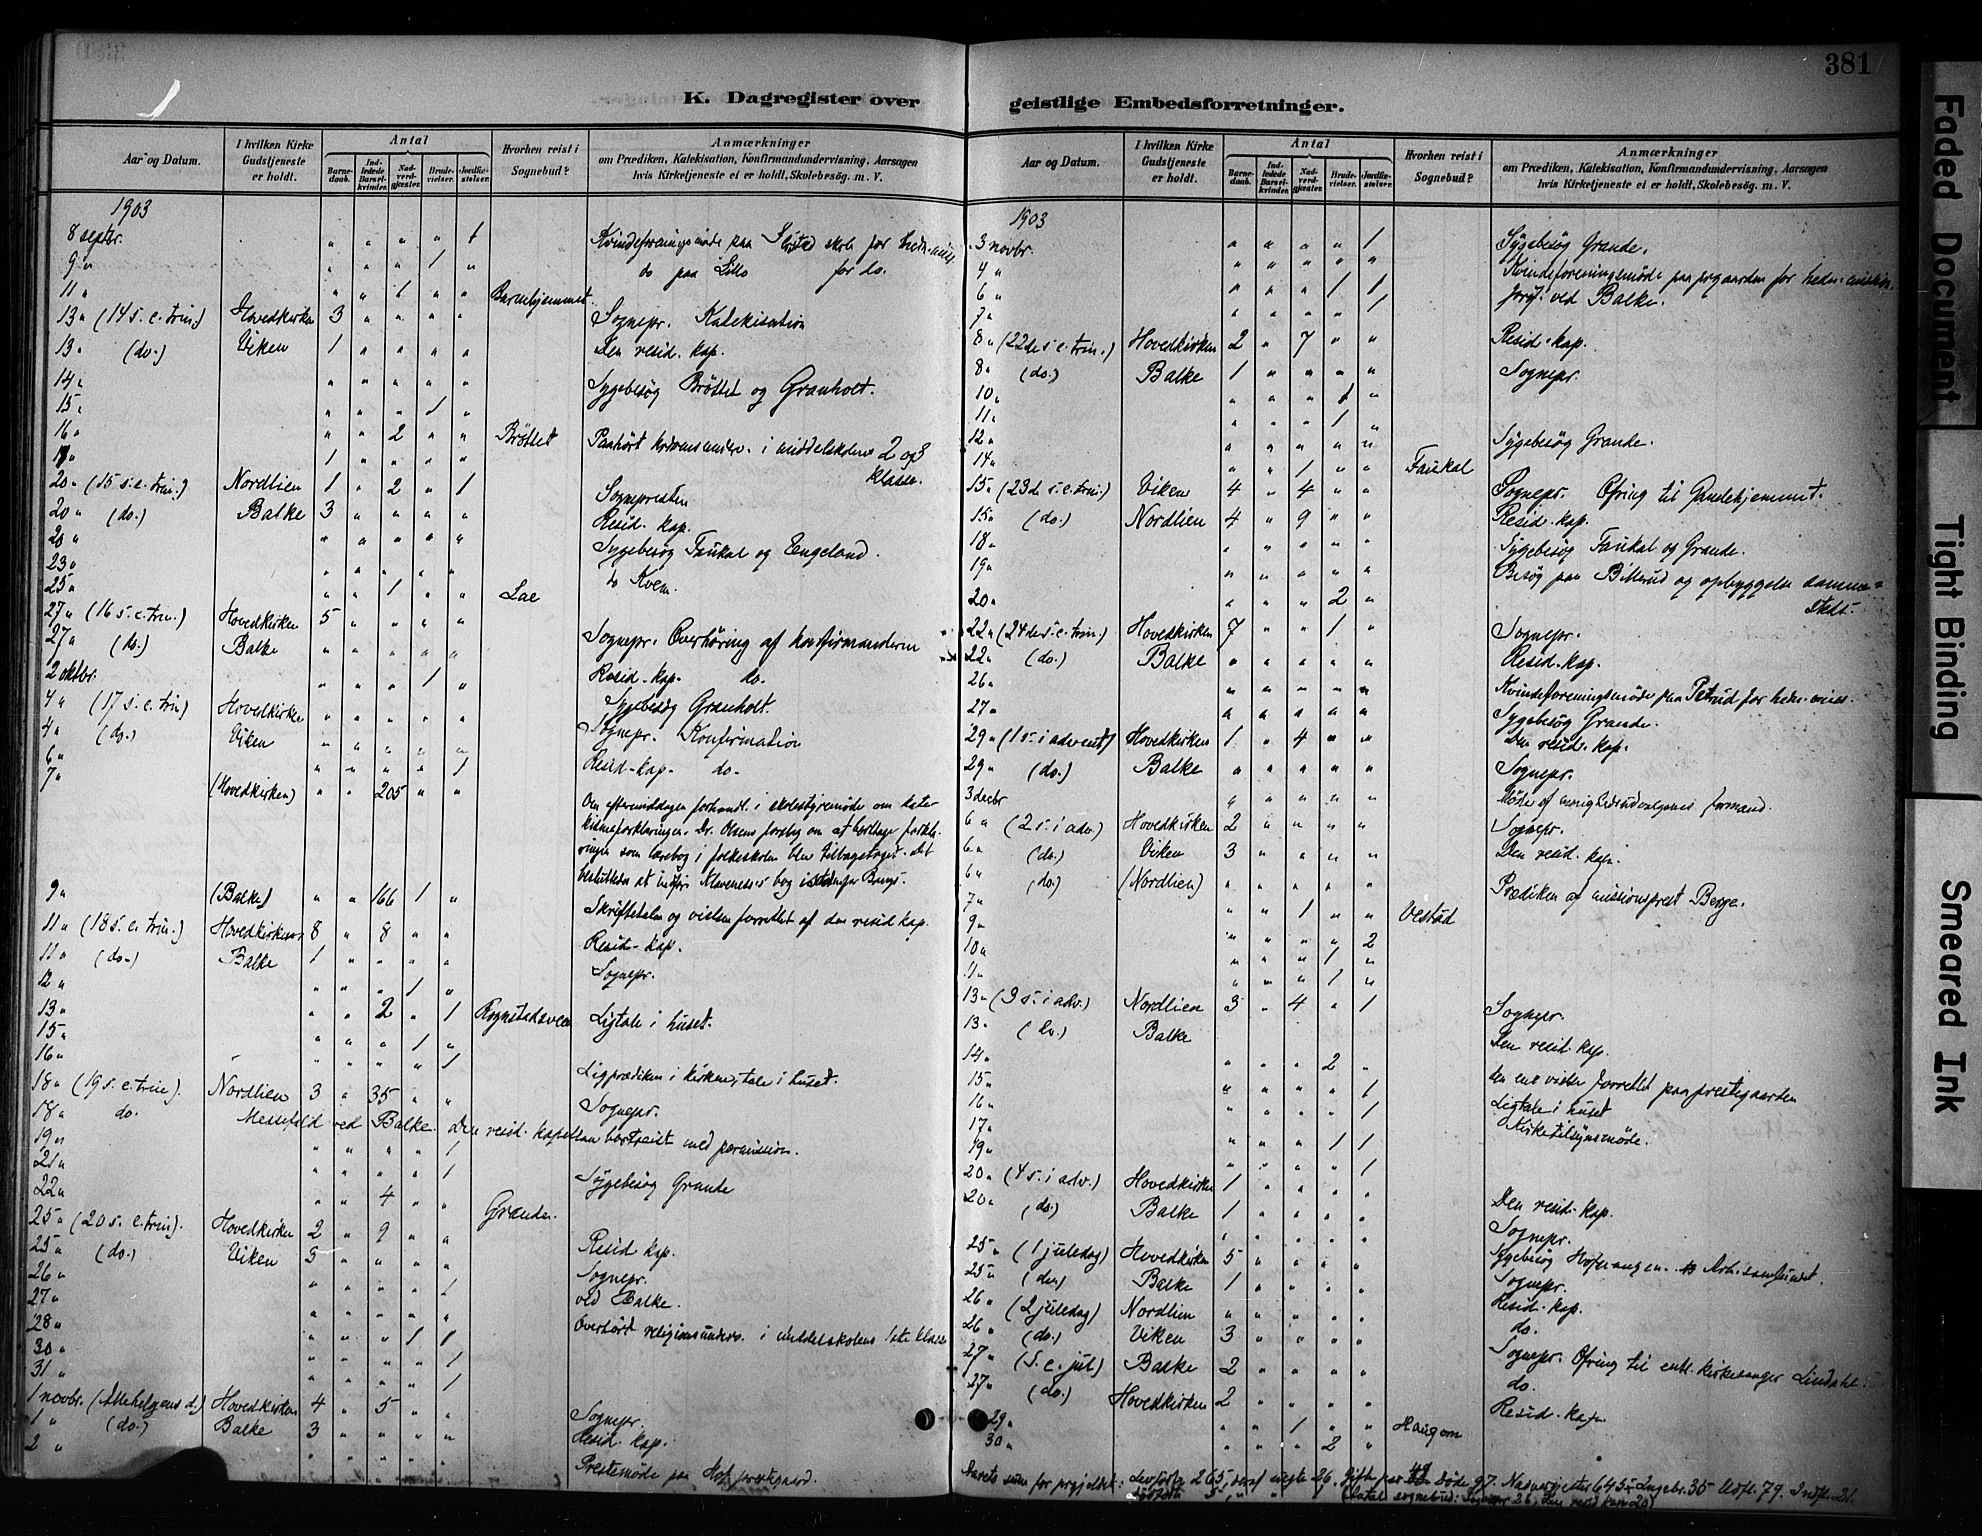 381
K. Dagregister over
Aar og Datum. I hvilken Kirke Gudstjeneste er holdt. Antal Barnedaab. Indledede Barselkvinder. Nadverdgjæster. Brudevielser. Jordfæstelser. Hvorhen reist i Sognebud? Anmærkninger om Prædiken, Katekisation, Konfirmandundervisning, Aarsagen hvis Kirketjeneste ei er holdt, Skolebesøg. m. V.
1903
8 septbr. " " " " 1 Kvindeforeningsmøde paa skole for hedn.miss.
9 " " " " 1 " do paa Lillo for do.
11 " " " 1 " " Barnehjemmet
13 " (14 s. e. trin.) Hovedkirken 3 " " " " Sognepr. Katekisation
13 " (do.) Viken 1 " " " " Den resid. kap.
14 " " " " " " Sygebesøg Brøttet og Granholt.
15 " " " " 1 "
16 " " " 2 " " Brøttet Paahørt i middelskolens 2 og 3
18 " 1 " " " " klasse.
20 " (15 s. e. trin.) Nordlien 1 " 2 " 1 Sognepresten
20 " (do.) Balke 3 " " " " Resid. kap.
20 " " " " " " Sygebesøg Faukal og Engeland.
23 " " " " " " do Kvem.
25 " " " 1 " " Lae
27 " (16 s. e. trin.) Hovedkirken 5 " " " " Sognepr. Overhøring af konfirmanderne
27 " (do.) Balke " " " " " Resid. kap. do.
2 oktbr. " " " 1 " Sygebesøg Granholt.
4 " (17 s. e. trin) Hovedkirke " " " " " Sognepr. Konfirmation
4 " (do.) Viken " " " " " Resid. kap. do.
6 " " " " " 1
7 " (Hovedkirken) " " 205 " " Om eftermiddagen forhandl. i skolestyremøde om
Dr. Olsens forslag om at borttage
som lærebog i folkeskolen blev tilbagetaget. det
besluttedes at indføre Klaveness's bog istedenfor
9 " (Balke) " " 166 1 " Skriftetalen og vielsen forrettet af den resid kap.
11 " (18 s. e. trin.) Hovedkirken 8 " 8 " " Resid. kap.
11 " (do.) Balke 1 " " " " Sognepr.
12 " " " " 1 "
13 " " " 2 " 1 Rognstadsveen Ligtale i huset.
15 " " " " 1 "
16 " " " " " 1 Ligprædiken i kirken, tale i huset.
18 " (19 s. e. trin). Nordlien 3 " 35 " " Sognepr.
18 " do. Messefald ved Balke. Den resid. kapellan bortreist med permission.
19 " " " " " 1
21 " " " " " 1 Sygebesøg Grande
22 " " " 4 " " Grande.
25 " (20 s. e. trin). Hovedkirke 2 " 9 " " Resid kap.
25 " (do.) Viken 3 " " " " Sognepr.
26 " " " " " 1 ved Balke.
27 " " " " " "
28 " " " " 1 1 Overhørt religionsunderv. i middelskolens 1ste klasse
30 " " " " " 1
31 " " " " " 1
1 novbr. (Allehelgens d.) Hovedkirken 4 " 5 " " Sognepr.
1 " (do.) Balke 3 " " " " Resid. kap.
2 " " " " " " Prestemøde paa Hof prestgaard.
geistlige Embedsforretninger.
Aar og Datum. I hvilken Kirke Gudstjeneste er holdt. Antal Barnedaab. Indledede Barselkvinder. Nadverdgjæster. Brudevielser. Jordfæstelser. Hvorhen reist i Sognebud? Anmærkninger om Prædiken, Katekisation, Konfirmandundervisning, Aarsagen hvis Kirketjeneste ei er holdt, Skolebesøg. m. V.
1903
3 novbr. " " " " 1 Sygebesøg Grande.
4 " " " " " " Kvindeforeningsmøde paa prgaarden for hedn. mission.
6 " " " " 1 1 Jordf. ved Balke.
7 " " " " " 1
8 " (22de s. e. trin.) Hovedkirken 2 " 7 " " Resid. kap.
8 " (do.) Balke 1 " " " " Sognepr.
10 " " " " 1 "
11 " " " " 1 "
12 " " " " " " Sygebesøg Grande.
14 " " " 1 " " Faukal
15 " (23d. s. e. trin.) Viken 4 " 4 " " Sognepr. Ofring til
15 " (do.) Nordlien 4 " 9 " " Resid. kap.
18 " " " " " " Sygebesøg Faukal og Grande.
19 " " " " " " Besøg paa Billerud og opbyggelse sammesteds.
20 " " " " 2 "
22 " (24de s. e. trin.) Hovedkirken 7 " " 1 " Sognepr.
22 " (do.) Balke " " " " " Resid. kap.
26 " " " " " " Kvindeforeningsmøde paa Petrud for hedn. miss.
27 " " " " " " Sygebesøg Grande.
29 " (1 s. i advent) Hovedkirken 1 " 4 " " Den resid. kap.
29 " (do.) Balke " " " " " Sognepr.
3 decbr " " " " " Møde af formænd.
6 " (2 s. i adv.) Hovedkirken 2 " " " " Sognepr.
6 " (do.) Viken 3 " " " " Den resid. kap.
6 " (do.) (Nordlien) " " " " " Prædiken af missionsprest Berge.
7 " " " 1 " " Vestad
9 " " " " " 2
10 " " " " 1 "
11 " " " " 1 "
13 " (3 s. i adv.) Nordlien 3 " 4 " 1 Sognepr.
13 " (do.) Balke Den resid. kap.
14 " " " " 2 " den ene vielse forrettet paa prestegaarden
15 " " " " " 1 Ligtale i huset
16 " " " " " 1 Kirketilsynsmøde.
17 " " " " 1 1
19 " " " " " 1
20 " (4 s. i adv.) Hovedkirke 1 " " " " Den resid. kap.
20 " (do.) Balke 1 " " " " Sognepr.
25 " (1 juledag) Hovedkirken 5 " " " " Sognepr.
25 " (do.) Balke 1 " " " " Resid. kap.
26 " (2 juledag) Nordlien " " " " " do.
26 " (do.) Viken 3 " " " " Sognepr. Ofring til kirkesanger Lindahl.
27 " (S. e. jul) Balke 2 " " " " do.
27 " (do.) Hovedkirken 2 Resid. kap.
29 " " " 1 " " Haugom
30 " " " " 2 "
Aarets sum for prgjeldet: Levfødte 265, deraf uegte 26. Gifte par 49 Døde 97. Nadvergjester 645. 35 Udfl. 79. Indfl. 21.
dødfødte 5 " " (Antal sognebud: Sognepr 26, Den resid kap 20)
Faded Document
Tight Binding
Smeared Ink